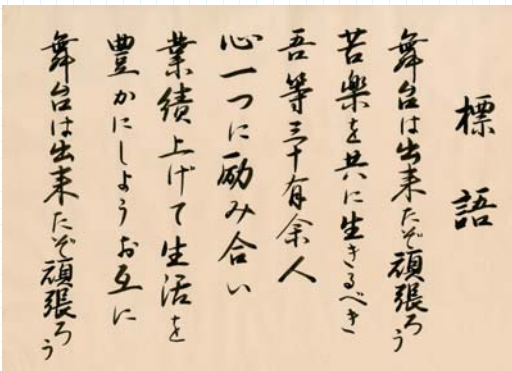 標語
舞台は出来たぞ頑張ろう
苦楽を共に生きるべき
吾等三十有余人
心一つに励み合い
業績上げて生活を
豊かにしようお互に
舞台は出来たぞ頑張ろう